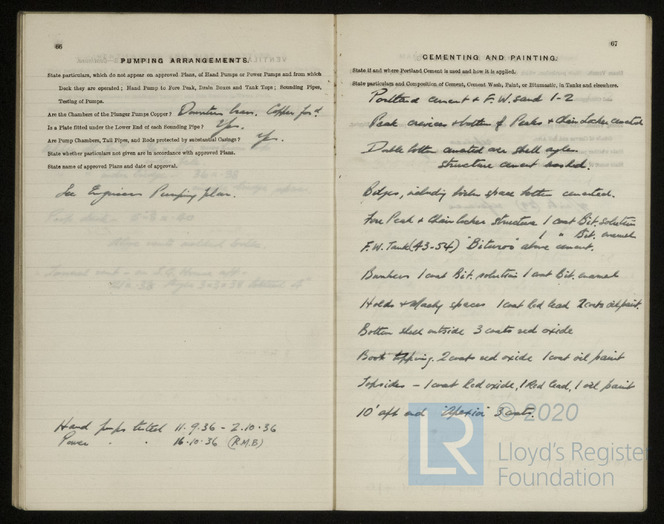 66
PUMPING ARRANGEMENTS.
State particulars, which do not appear on approved Plans, of Hand Pumps or Power Pumps and from which
Deck they are operated; Hand Pump to Fore Peak, Drain Boxes and Tank Tops; Sounding Pipes,
Testing of Pumps.
Are the Chambers of the Plunger Pumps Copper? Downton Iron. Copper for'd.
Is a Plate fitted under the Lower End of each Sounding Pipe? Yes.
Are Pump Chambers, Tail Pipes, and Rods protected by substantial Casings? Yes.
State whether particulars not given are in accordance with approved Plans.
State name of approved Plans and date of approval.
See Engineers Pumping plan.
Hand pumps tested 11.9.36 - 2.10.36
Power " " 16.10.36 (R.M.B)
67
CEMENTING AND PAINTING.
State if and where Portland Cement is used and how it is applied.
State particulars and Composition of Cement, Cement Wash, Paint, or Bitumastic, in Tanks and elsewhere.
Portland cement & F.W. sand 1-2
Peak crevices & bottom of Peaks & Chain Locker cemented
Double bottom cemented over shell
structure cement washed.
Bilges, boiler space bottom cemented.
Fore Peak & Chain locker structure 1 coat Bit. solution
1 " Bit. enamel
F.W. Tank (43-54) Bituros above cement.
Bunkers 1 coat Bit. solution 1 coat Bit. enamel
Holds & Machy spaces 1 coat led lead 2 coats oil paint.
Bottom shell outside 3 coats red oxide
Boot topping. 2 coats red oxide 1 coat oil paint
Topsides - 1 coat led oxide, 1 Red lead, 1 oil paint
10' aft end "Apexior" 3 coats.
© 2020
LR
Lloyd's Register
Foundation